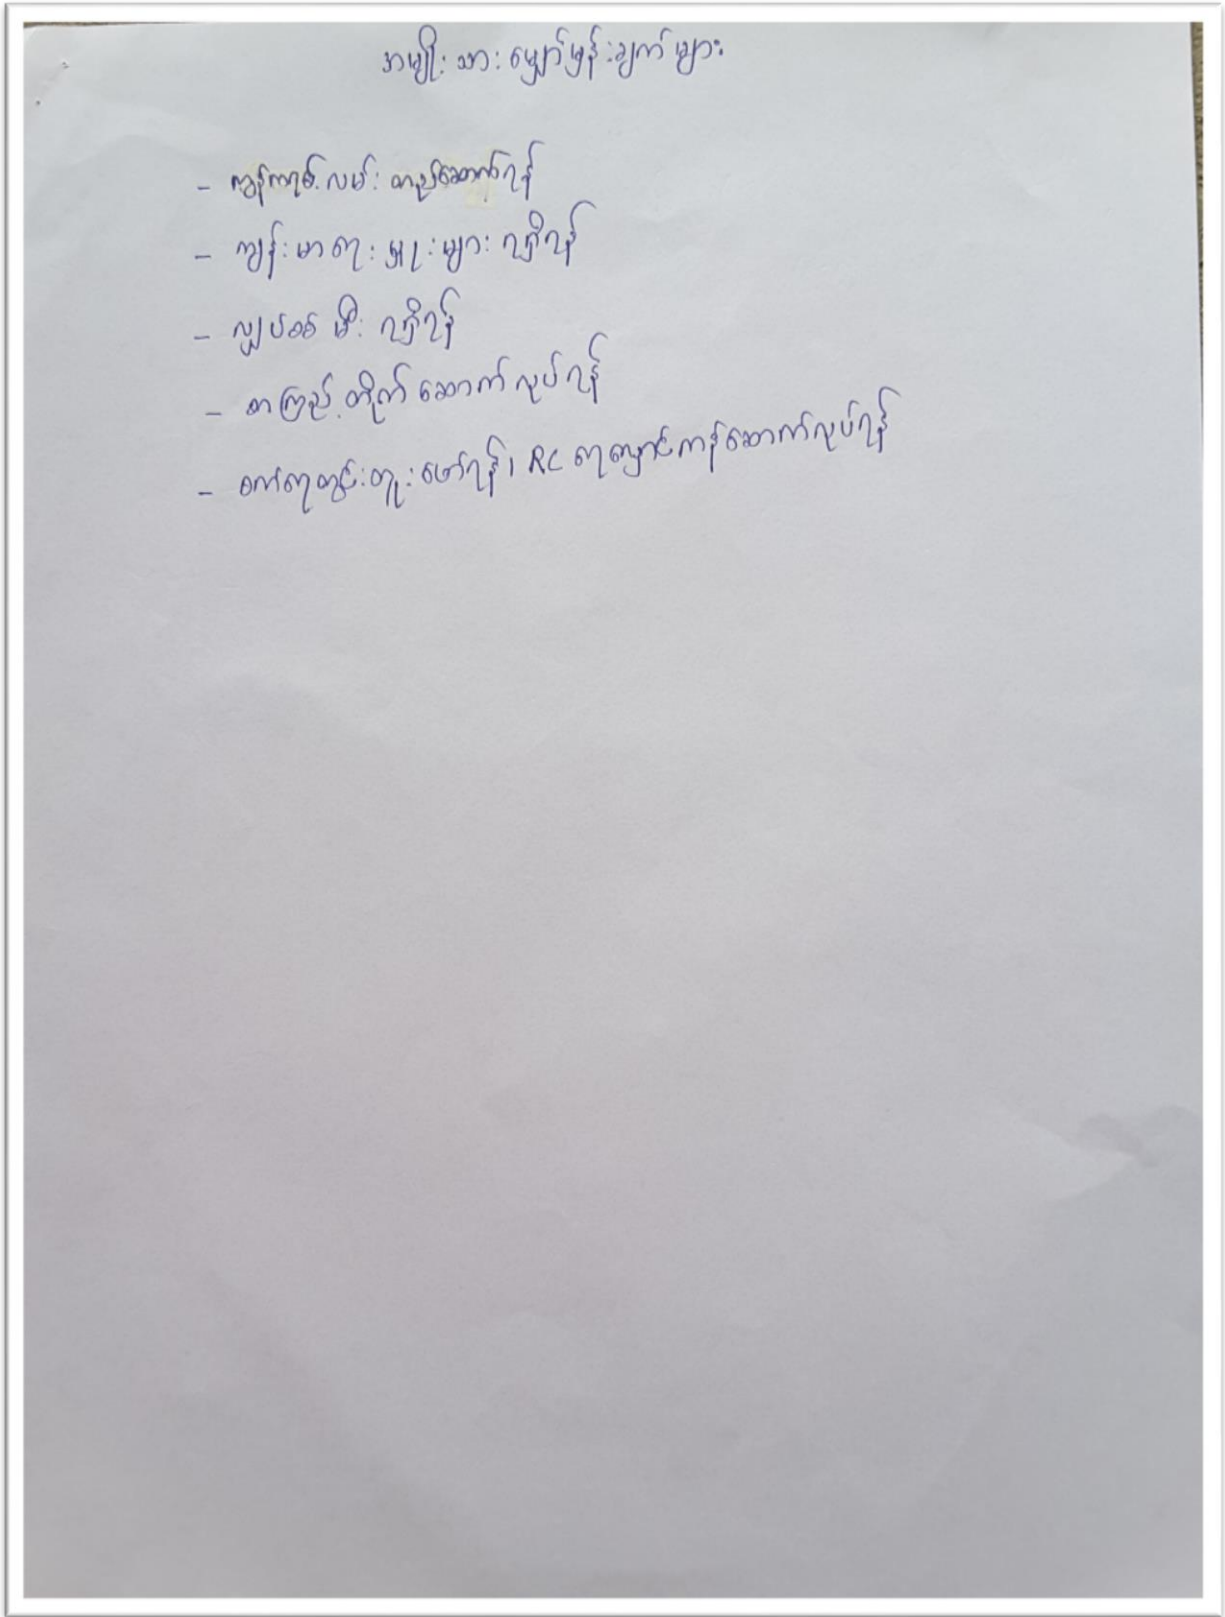 အမျိုးသားမျှော်မှန်းချက်များ
- ကွန်ကရစ်လမ်းတည်ဆောက်ရန်
- ကျန်းမာရေးမှူးများရရှိရန်
- လျှပ်စစ်မီးရရှိရန်
- စာကြည့်တိုက်ဆောက်လုပ်ရန်
- စက်ရေတွင်းတူးဖော်ရန်၊ RC ရေလှောင်ကန်ဆောက်လုပ်ရန်